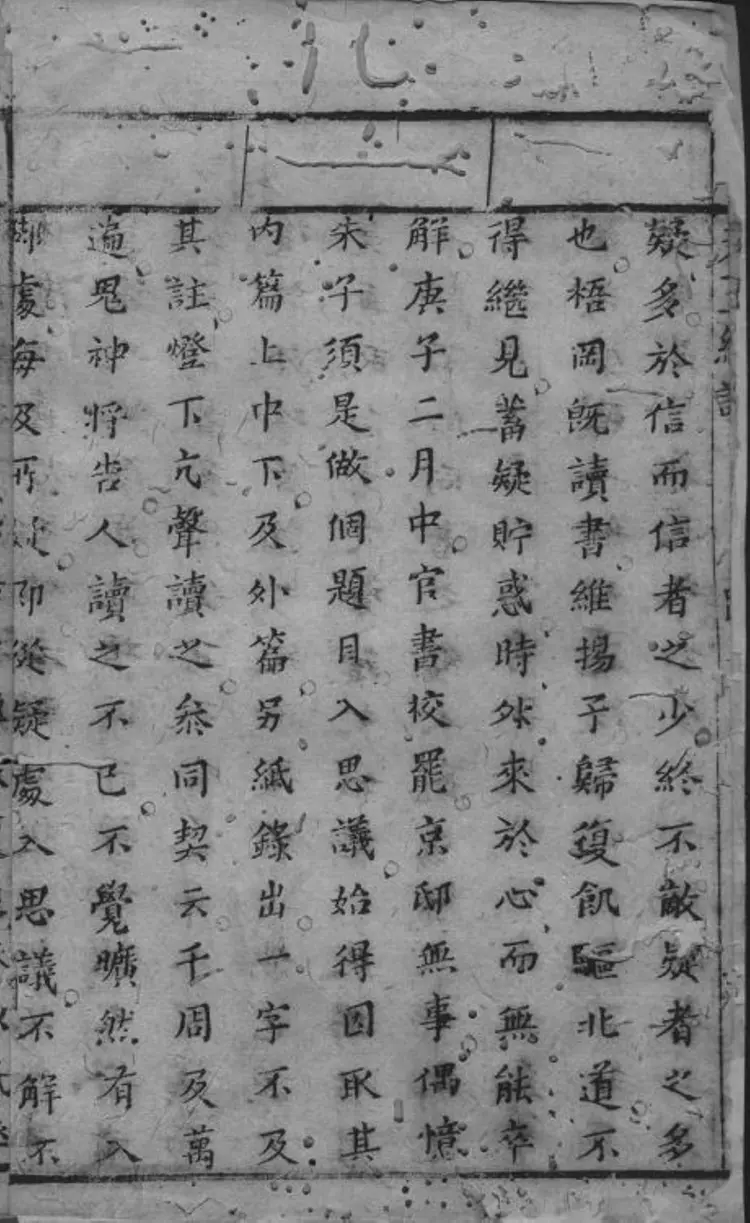 疑多於信而信者之少終不敵疑者之多
也梧岡旣讀書維揚予歸復飢驅北道不
得繼見蓄疑貯惑時然來於心而無能卒
解庚子二月中官書校罷京邸無事偶憶
朱子須是做個題目入思議始得因取其
內篇上中下及外篇另紙錄出一字不及
其註燈下亢聲讀之叅同契云千周及萬
遍鬼神將告人讀之不已不覺曠然有入
處每及所疑即從疑處入思議不解不